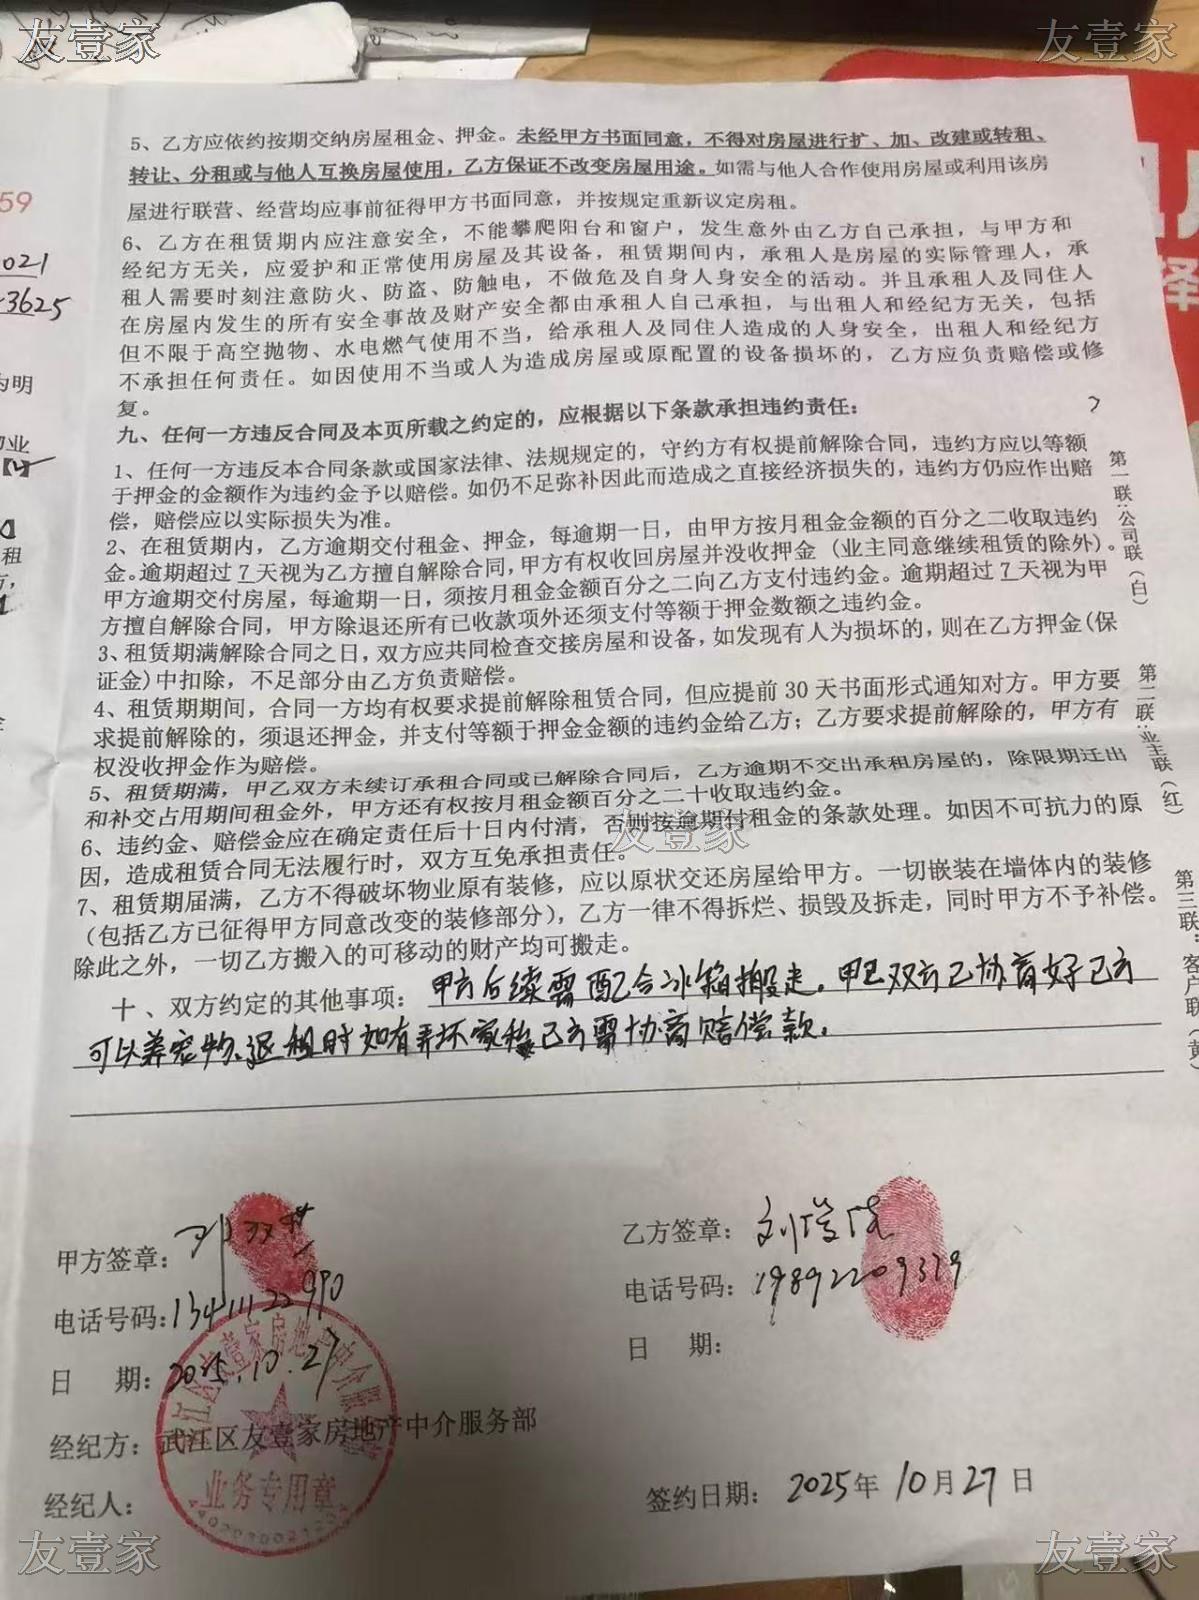 友壹家
友壹家
5、乙方应依约按期交纳房屋租金、押金。未经甲方书面同意，不得对房屋进行扩、加、改建或转租、
转让、分租或与他人互换房屋使用，乙方保证不改变房屋用途。如需与他人合作使用房屋或利用该房
屋进行联营、经营均应事前征得甲方书面同意，并按规定重新议定房租。
6、乙方在租赁期内应注意安全，不能攀爬阳台和窗户，发生意外由乙方自己承担，与甲方和
经纪方无关，应爱护和正常使用房屋及其设备，租赁期间内，承租人是房屋的实际管理人，承
租人需要时刻注意防火、防盗、防触电，不做危及自身人身安全的活动。并且承租人及同住人
在房屋内发生的所有安全事故及财产安全都由承租人自己承担，与出租人和经纪方无关，包括
但不限于高空抛物、水电燃气使用不当，给承租人及同住人造成的人身安全，出租人和经纪方
不承担任何责任。如因使用不当或人为造成房屋或原配置的设备损坏的，乙方应负责赔偿或修
复。
九、任何一方违反合同及本页所载之约定的，应根据以下条款承担违约责任：
1、任何一方违反本合同条款或国家法律、法规规定的，守约方有权提前解除合同，违约方应以等额
于押金的金额作为违约金予以赔偿。如仍不足弥补因此而造成之直接经济损失的，违约方仍应作出赔
偿，赔偿应以实际损失为准。
2、在租赁期内，乙方逾期交付租金、押金，每逾期一日，由甲方按月租金金额的百分之二收取违约
金。逾期超过7天视为乙方擅自解除合同，甲方有权收回房屋并没收押金（业主同意继续租赁的除外）。
甲方逾期交付房屋，每逾期一日，须按月租金金额百分之二向乙方支付违约金。逾期超过7天视为甲
方擅自解除合同，甲方除退还所有已收款项外还须支付等额于押金数额之违约金。
3、租赁期满解除合同之日，双方应共同检查交接房屋和设备，如发现有人为损坏的，则在乙方押金(保
证金)中扣除，不足部分由乙方负责赔偿。
4、租赁期期间，合同一方均有权要求提前解除租赁合同，但应提前30天书面形式通知对方。甲方要
求提前解除的，须退还押金，并支付等额于押金金额的违约金给乙方；乙方要求提前解除的，甲方有
权没收押金作为赔偿。
5、租赁期满，甲乙双方未续订承租合同或已解除合同后，乙方逾期不交出承租房屋的，除限期迁出
和补交占用期间租金外，甲方还有权按月租金额百分之二十收取违约金。
6、违约金、赔偿金应在确定责任后十日内付清，否则按逾期付租金的条款处理。如因不可抗力的原
因，造成租赁合同无法履行时，双方互免承担责任。
7、租赁期届满，乙方不得破坏物业原有装修，应以原状交还房屋给甲方。一切嵌装在墙体内的装修
（包括乙方已征得甲方同意改变的装修部分），乙方一律不得拆烂、损毁及拆走，同时甲方不予补偿。
除此之外，一切乙方搬入的可移动的财产均可搬走。
十、双方约定的其他事项：甲方后续需配合冰箱搬走。甲乙双方已协商好乙方
可以养宠物、退租时如有弄坏家私乙方需协商赔偿款。
友壹家
第一联：公司联（白）
第二联：业主联（红）
第三联：客户联（黄）
59
021
-3625
为明
租
甲方签章：
电话号码：13411122990
日 期：2025.10.27
经纪方：武江区友壹家房地产中介服务部
经纪人：
武江区友壹家房地产中介服务部
业务专用章
乙方签章：
电话号码：19892209319
日 期：
签约日期：2025年10月27日
友壹家
友壹家